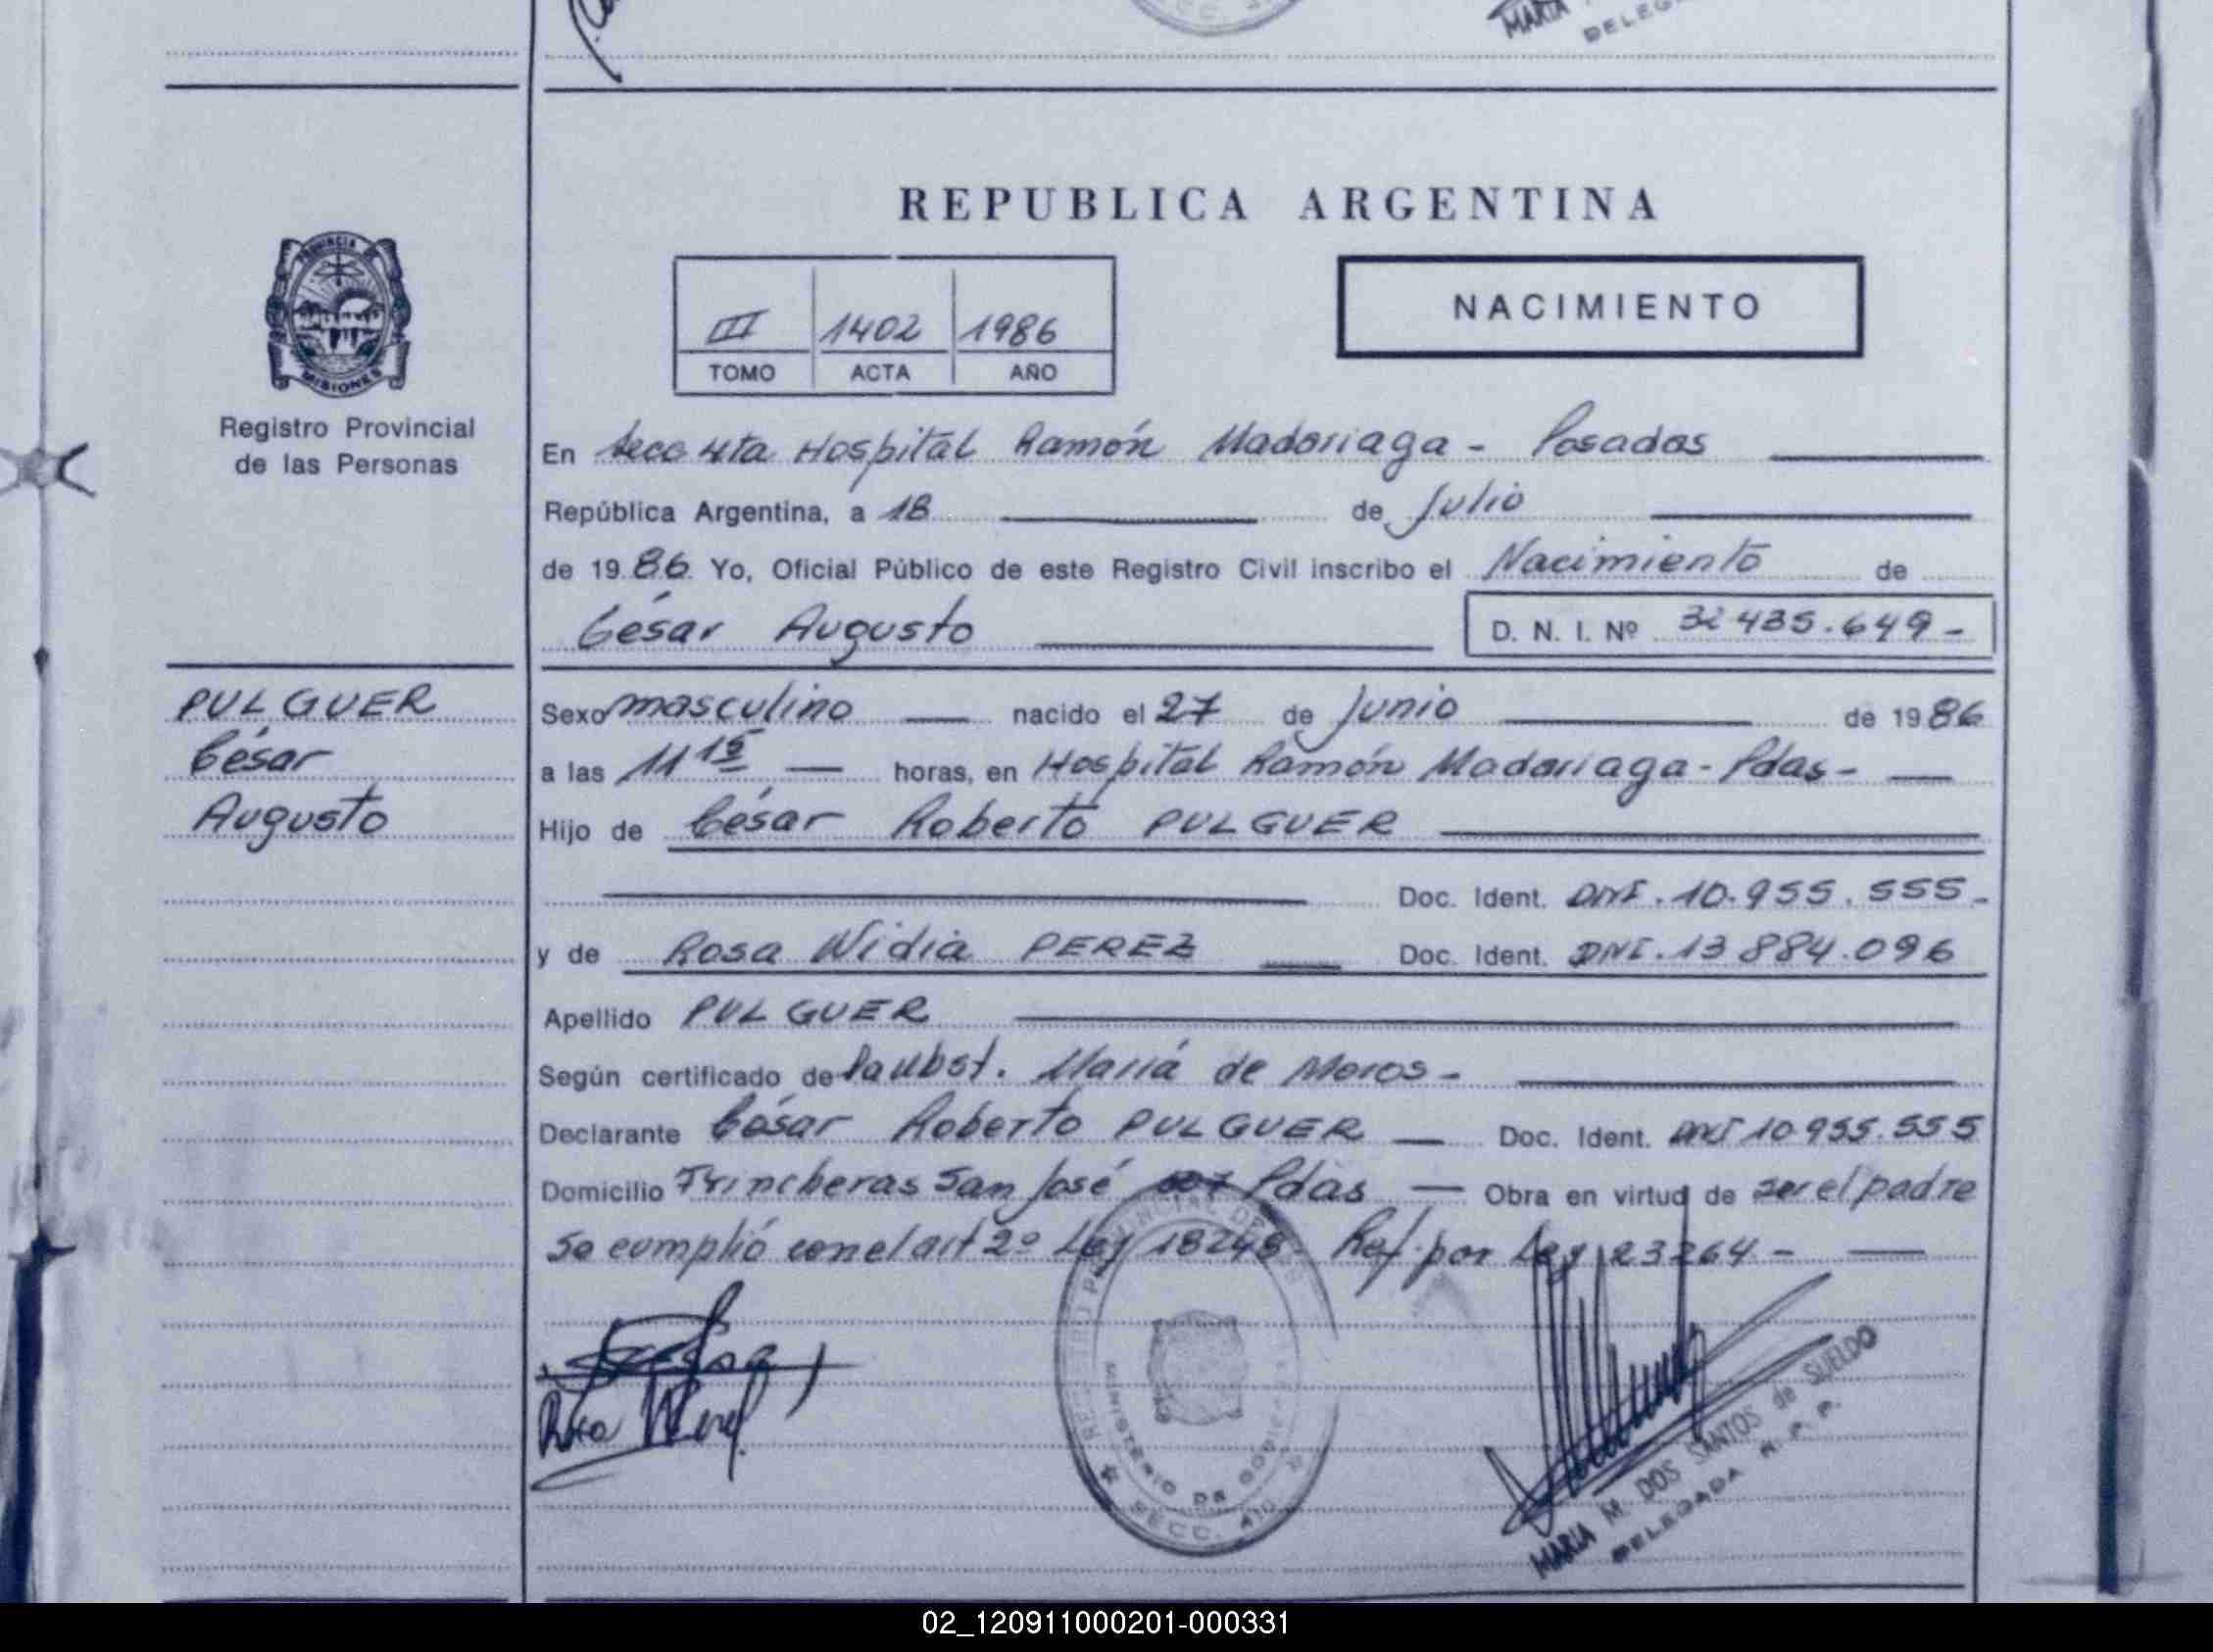 MARIA
DELEG
REPUBLICA ARGENTINA
PROVINCIA DE
MISIONES
III 1402 1986
TOMO ACTA AÑO
NACIMIENTO
Registro Provincial
de las Personas
En Secc 4ta Hospital Ramón Madariaga - Posadas
República Argentina, a 18 de Julio
de 1986 Yo, Oficial Público de este Registro Civil inscribo el Nacimiento de
César Augusto D. N. I. Nº 32 435.649 -
PULGUER
César
Augusto
Sexo masculino nacido el 27 de Junio de 1986
a las 11 15 horas, en Hospital Ramón Madariaga - Pdas -
Hijo de César Roberto PULGUER
Doc. Ident. DNI. 10.955.555 -
y de Rosa Nidia PEREZ Doc. Ident. DNI. 13 884.096
Apellido PULGUER
Según certificado de María de Meros -
Declarante César Roberto PULGUER Doc. Ident. DNI 10 955.555
Domicilio Trincheras San José Pdas Obra en virtud de ser el padre
Se cumplió con el art 2º Ley 18248 - Ref. por Ley 23264 -
Rosa
REGISTRO PROVINCIAL DE LAS
MINISTERIO DE
SECC. 4TA
MARIA M. DOS SANTOS de SUELDO
DELEGADA R. P. P.
02_120911000201-000331